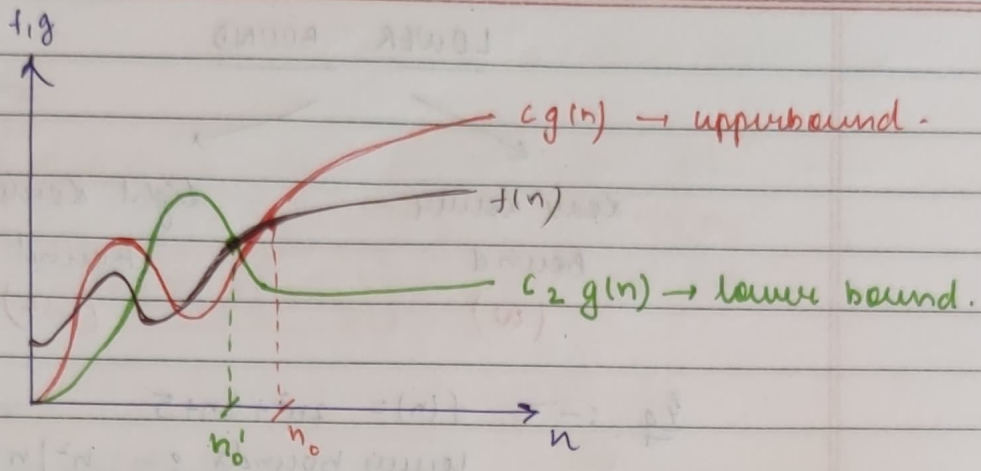 f,g
cg(n) → upperbound.
f(n)
c2 g(n) → lower bound.
n0' n0 n